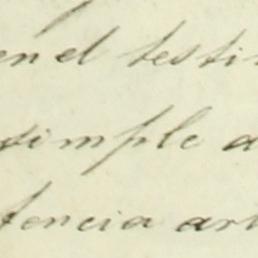 en el testi
simple a
tencia ar